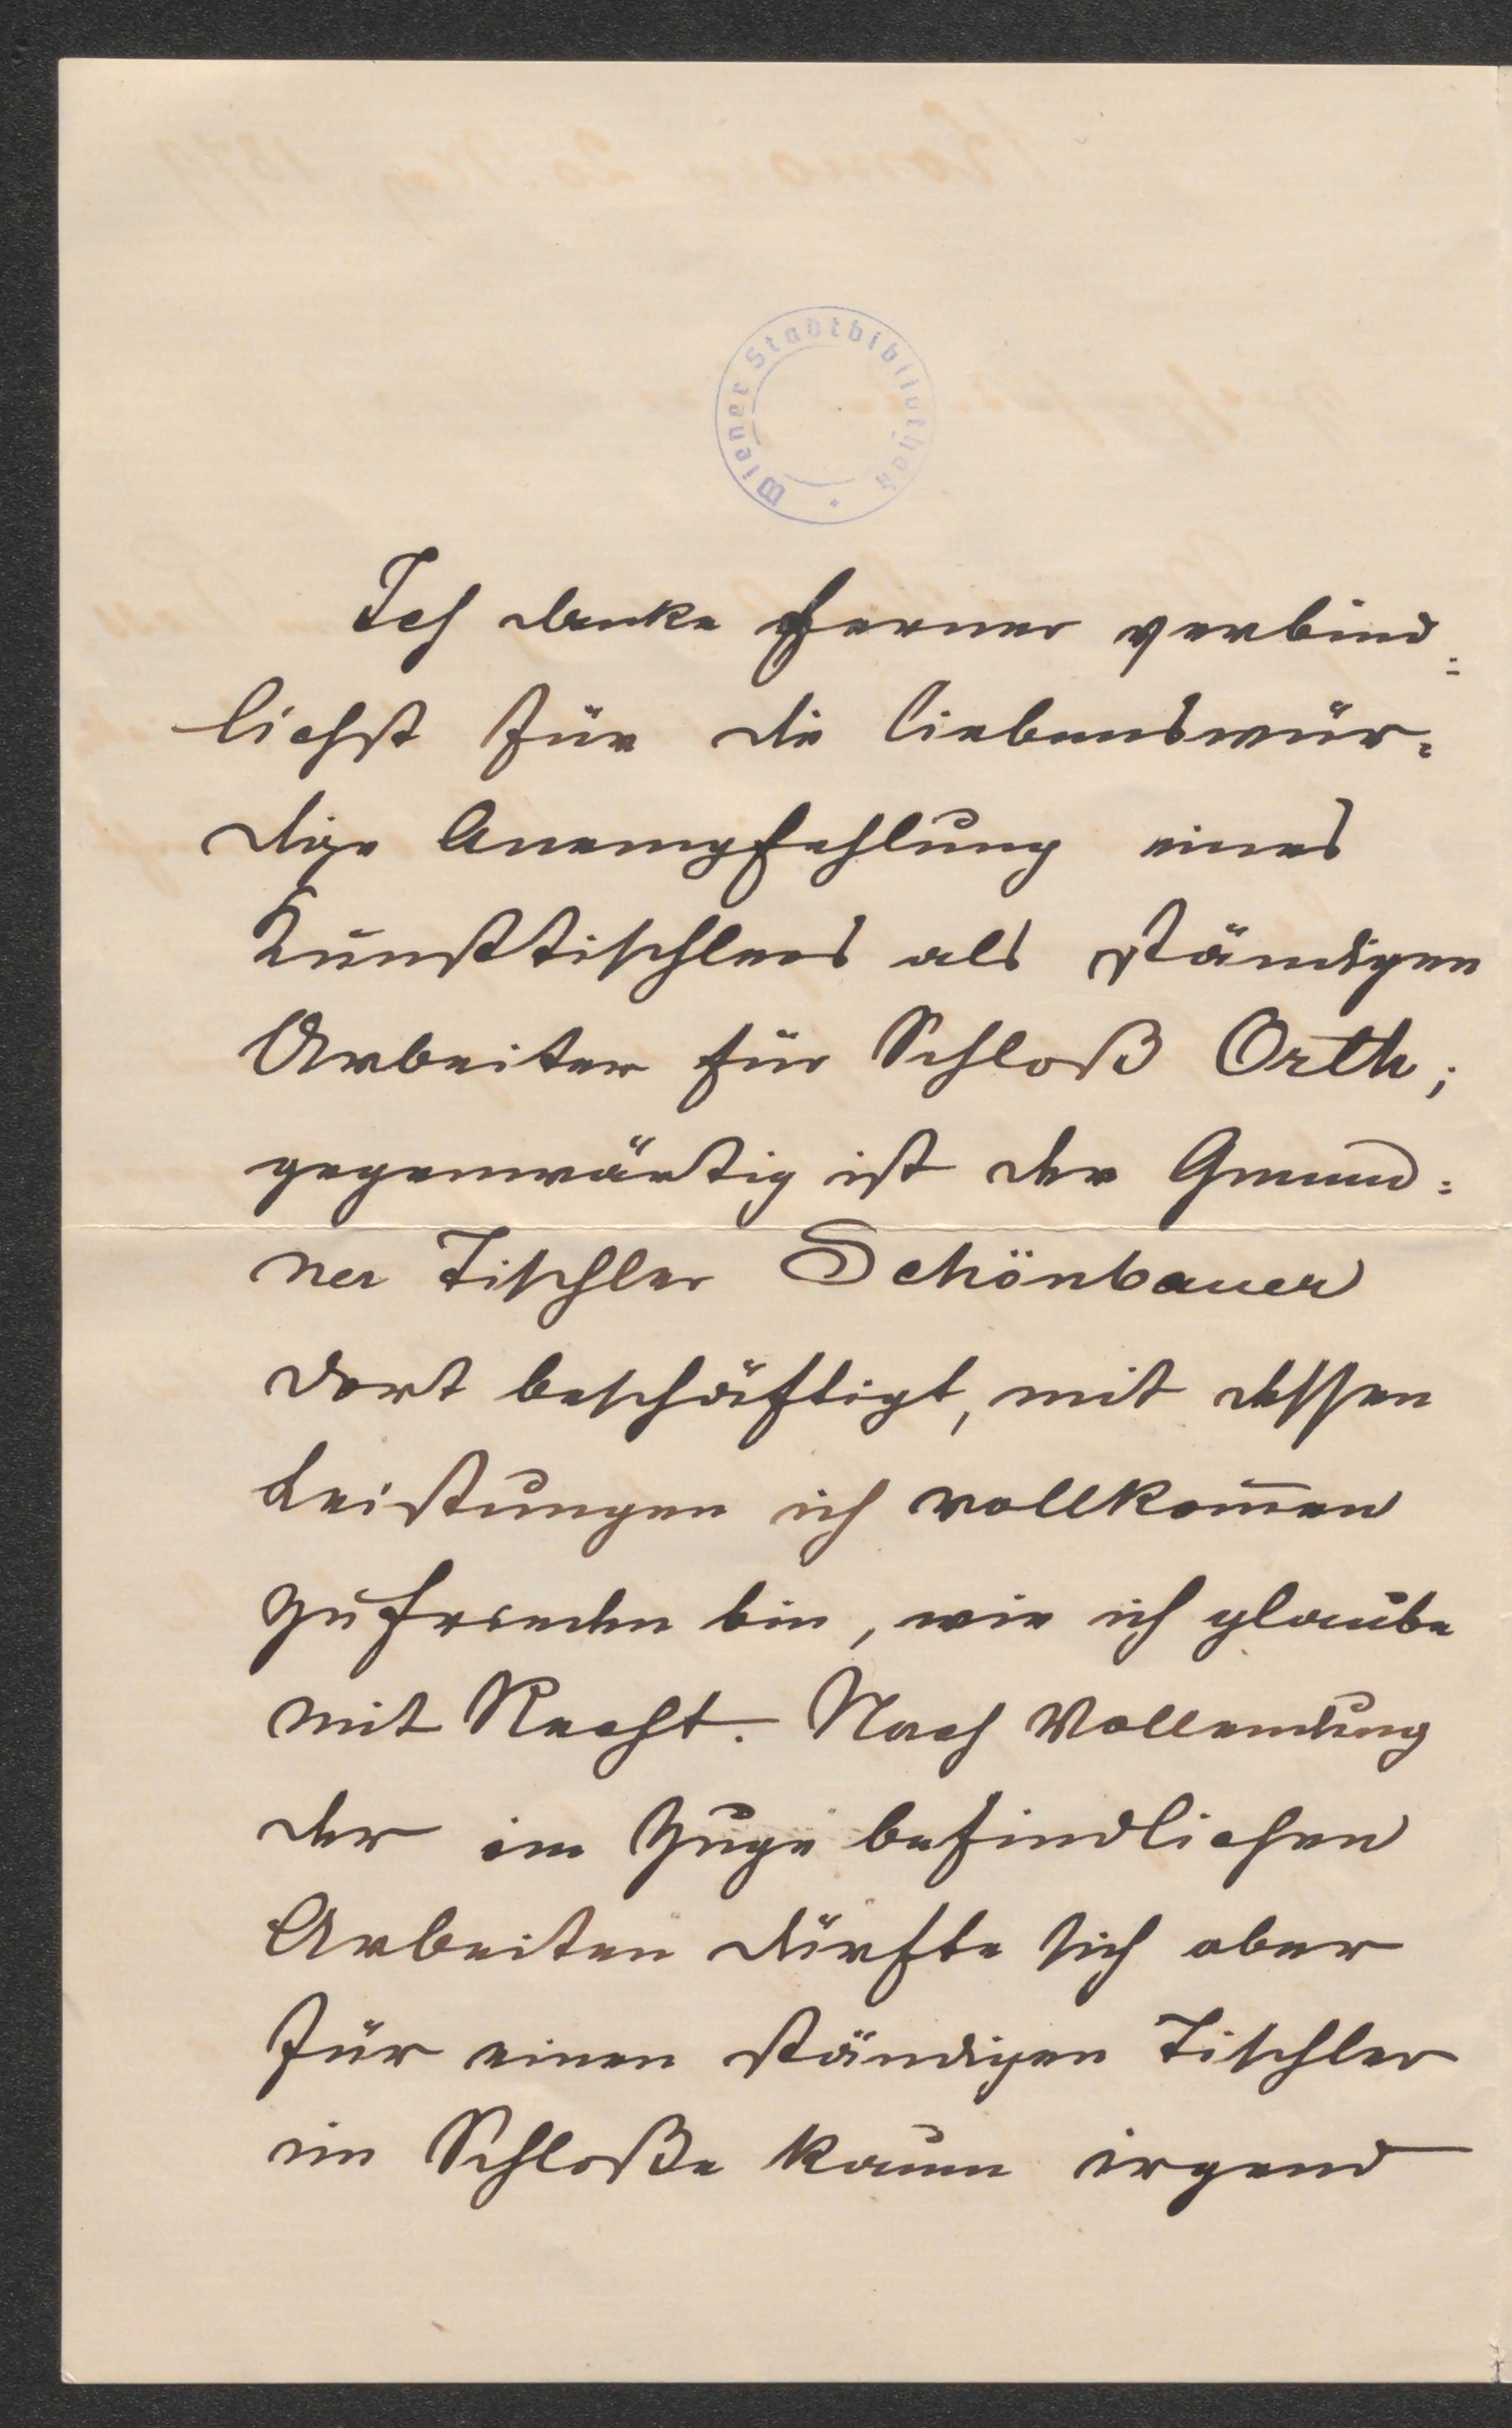 Wiener Stadtbibliothek
Ich danke ferner verbind=
lichst für die liebenswür=
dige Anempfehlung eines
Kunsttischlers als ständigen
Arbeiter für Schloß Orth;
gegenwärtig ist der Gmund=
ner Tischler Schönbauer
dort beschäftigt, mit dessen
Leistungen ich vollkom̄en
zufrieden bin, wie ich glaube
mit Recht. Nach Vollendung
der im Zuge befindlichen
Arbeiten dürfte sich aber
für einen ständigen Tischler
im Schloße kaum irgend